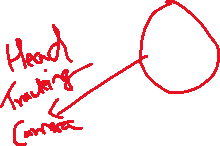 Head
Tracking
Camera